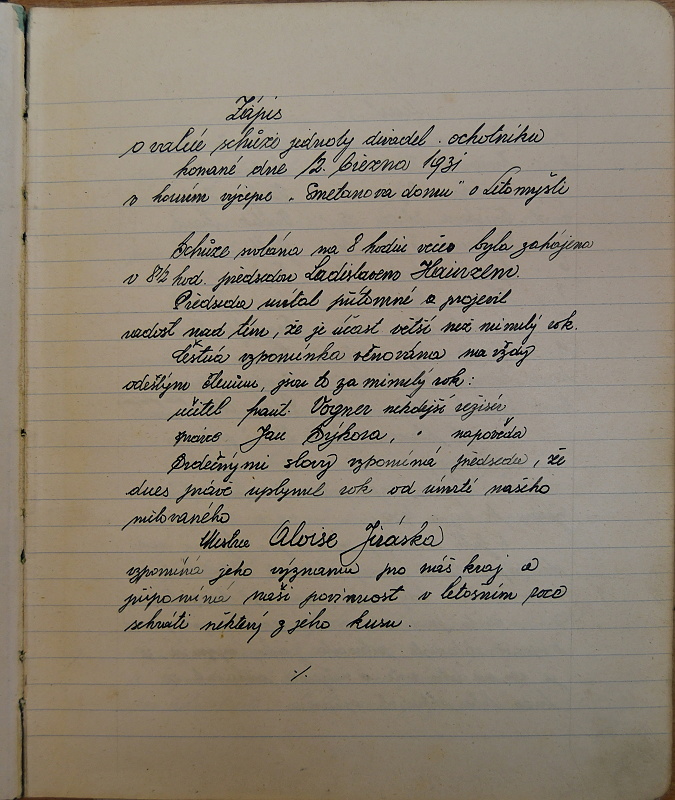 Zápis
o valné schůze jednoty divadel. ochotníku
konané dne 12. března 1931
v horním výčepu „Smetanova domu" v Litomyšli
Schůze svolána na 8 hodin večer byla zahájena
v 8½ hod. předsedou Ladislavem
Předseda uvítal přítomné a projevil
radost nad tím, že je účast větší než minulý rok.
vzpomínka věnována na vždy
odešlým členům, jsou to za minulý rok:
učitel frant. Vogner někdejší režisér,
Jan Brýkora, " napověda
Srdečnými slovy vzpomíná předseda, že
dnes právě uplynul rok od úmrtí našeho
milovaného
Mistra Aloise Jiráska
vzpomíná jeho významu pro náš kraj a
připomíná naši povinnost v letošním roce
sehráti některý z jeho kusu.
./.